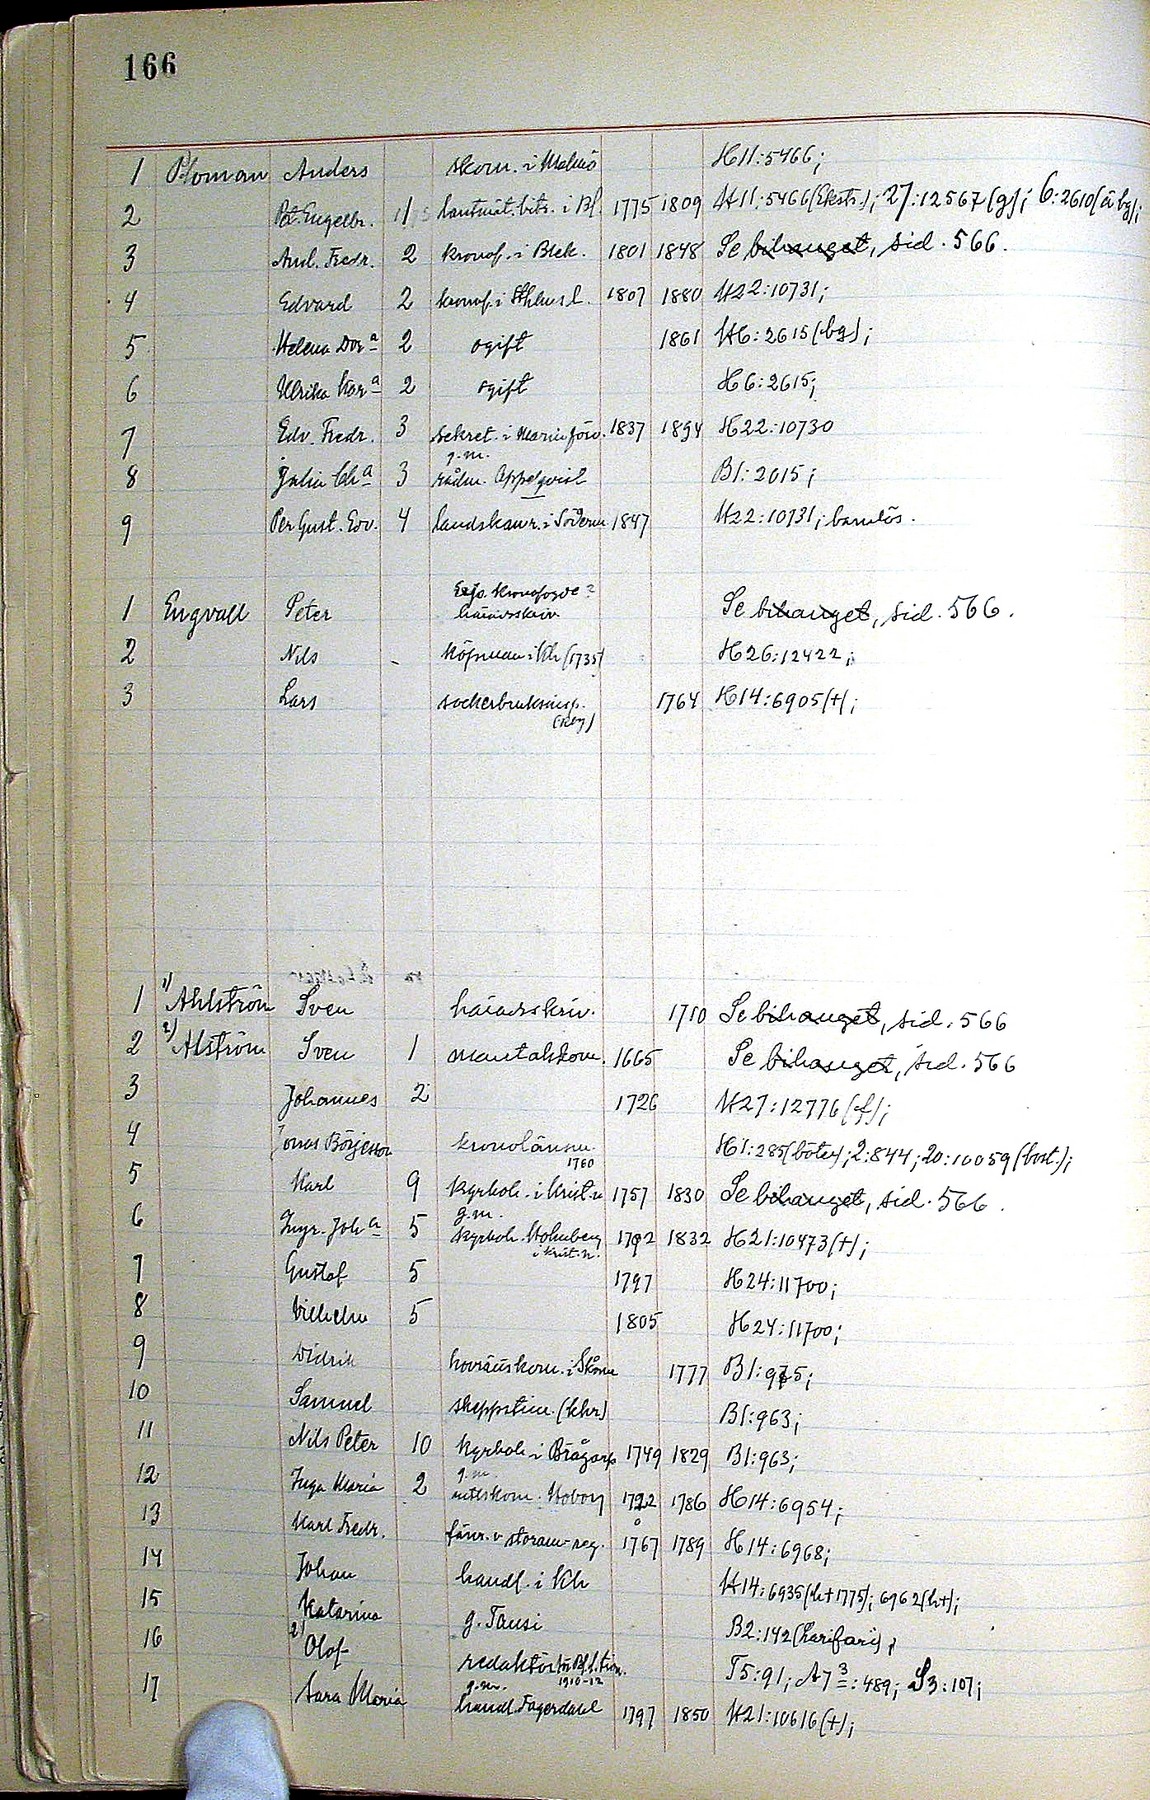 166
1 Ploman Anders skom. i Malmö H11:5466;
2 Pet. Engelbr. 1 lantmät. bitr. i Bl. 1775 1809 H11:5466 (Ekstr.); 27:12567 (g); 6:2610 (ä bg);
3 And. Fredr. 2 kronof. i Blek. 1801 1848 Se bihanget, sid. 566.
4 Edvard 2 kronof. i 1807 1880 H22:10731;
5 Helena Dor a 2 ogift 1861 H6:2615 (bg);
6 Ulrika Kar a 2 ogift H6:2615;
7 Edv. Fredr. 3 sekret. i Marinförv. 1837 1894 H22:10730
8 Julia Ch a 3 g.m. rådm. Appelqvist B1:2015;
9 Per Gust. Edv. 4 landskanr. i Söderm 1847 H22:10731; barnlös.
1 Engvall Peter kronofogde? häradsskriv. Se bihanget, sid. 566.
2 Nils - köpman i Khr (1735) H26:12422;
3 Lars sockerbruksinsp. 1764 H14:6905 (+);
1 1) Ahlström Sven häradsskriv. 1710 Se bihanget, sid. 566
2 2) Alström Sven 1 mantalskom. 1665 Se bihanget, sid. 566
3 Johannes 2 1726 H27:12776 (f);
4 Jonas Börjesson kronolänsm. 1760 H1:285 (böter); 2:844; 20:10059 (bost.);
5 Karl 9 kyrkoh. i Krist-n 1757 1830 Se bihanget, sid. 566.
6 Ingr. Joh a 5 g.m. kyrkoh. Holmberg i Krist.n. 1792 1832 H21:10473 (+);
7 Gustaf 5 1797 H24:11700;
8 Vilhelm 5 1805 H24:11700;
9 Didrik hovrättskom. i Skåne 1777 B1:975;
10 Samuel skeppstim. (Khr) B1:963;
11 Nils Peter 10 kyrkoh. i Brågarp 1749 1829 B1:963;
12 Inga Maria 2 g.m. Moborg 1722 1786 H14:6954;
13 Karl Fredr. fänr. v storam-reg. 1767 1789 H14:6968;
14 Johan handl. i Khr H14:6935 (h+1775); 6962 (h+);
15 Katarina g. Tausi B2:142 (Harifari);
16 2) Olof redaktör för Bl. l. tidn. 1910-12 T5:91; A7 3:489; S3:107;
17 Sara Maria g.m. handl. Fagerdahl 1797 1850 H21:10616 (+);